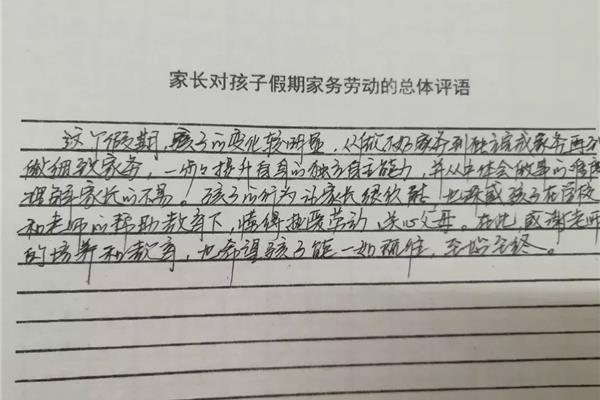 家长对孩子假期家务劳动的总体评语
这个假期,孩子的变化较明显,从做不好家务到独立完成家务再到
做细致家务,一步步提升自身的独立自主能力,并从中体会做事的难度
理解家长的不易。孩子的行为让家长很欣慰,也感孩子在学校
和老师的帮助教育下,懂得热爱劳动、关心父母。在此,感谢老师
的培养和教育,也希望孩子能一如既往,至始至终。